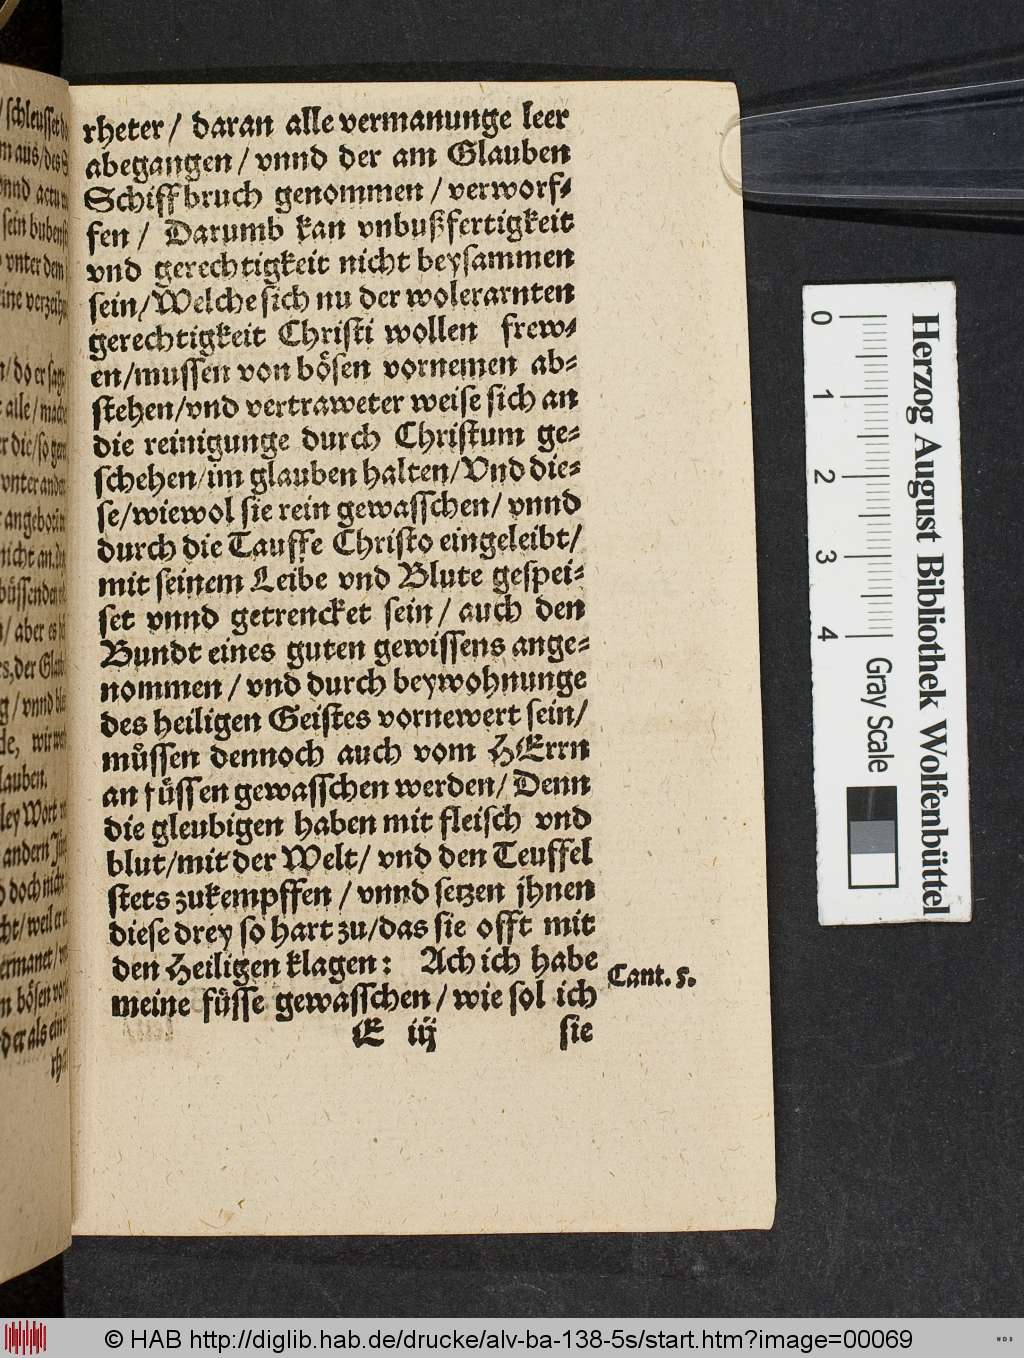 rheter/ daran alle vermanunge leer
abegangen/ vnnd der am Glauben
Schiffbruch genommen/ verworf⸗
fen/ Darumb kan vnbußfertigkeit
vnd gerechtigkeit nicht beysammen
sein/Welche sich nu der wolerarnten
gerechtigkeit Christi wollen frew⸗
en/mussen von bösen vornemen ab⸗
stehen/vnd vertraweter weise sich an
die reinigunge durch Christum ge⸗
schehen/im glauben halten/Vnd die⸗
se/wiewol sie rein gewasschen/ vnnd
durch die Tauffe Christo eingeleibt/
mit seinem Leibe vnd Blute gespei⸗
set vnnd getrencket sein/ auch den
Bundt eines guten gewissens ange⸗
nommen/ vnd durch beywohnunge
des heiligen Geistes vornewert sein/
müssen dennoch auch vom HErrn
an füssen gewasschen werden/ Denn
die gleubigen haben mit fleisch vnd
blut/mit der Welt/ vnd den Teuffel
stets zukempffen/ vnnd setzen jhnen
diese drey so hart zu/das sie offt mit
den Heiligen klagen: Ach ich habe
meine füsse gewasschen/ wie sol ich
Cant. 5.
E iij sie
/ schleusset
m aus/des
sein
vnter dem
/ do er
alle/
die/so
vnter
nicht an.
/ aber es
s, der
g/ vnnd
de, wir
lauben.
ley Wort
andern
doch
ht/ weil er
n bösen
der als ein
rh
0 1 2 3 4
Gray Scale
Herzog August Bibliothek Wolfenbüttel
© HAB http://diglib.hab.de/drucke/alv-ba-138-5s/start.htm?image=00069
WDB